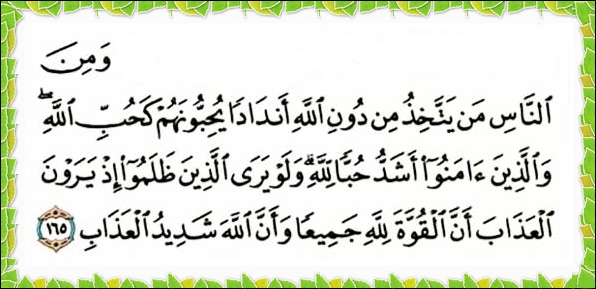 وَمِنَ
ٱلنَّاسِ مَن يَتَّخِذُ مِن دُونِ ٱللَّهِ أَندَادًا يُحِبُّونَهُمْ كَحُبِّ ٱللَّهِ ۖ
وَٱلَّذِينَ ءَامَنُوٓا۟ أَشَدُّ حُبًّا لِّلَّهِ ۗ وَلَوْ يَرَى ٱلَّذِينَ ظَلَمُوٓا۟ إِذْ يَرَوْنَ
ٱلْعَذَابَ أَنَّ ٱلْقُوَّةَ لِلَّهِ جَمِيعًا وَأَنَّ ٱللَّهَ شَدِيدُ ٱلْعَذَابِ ١٦٥